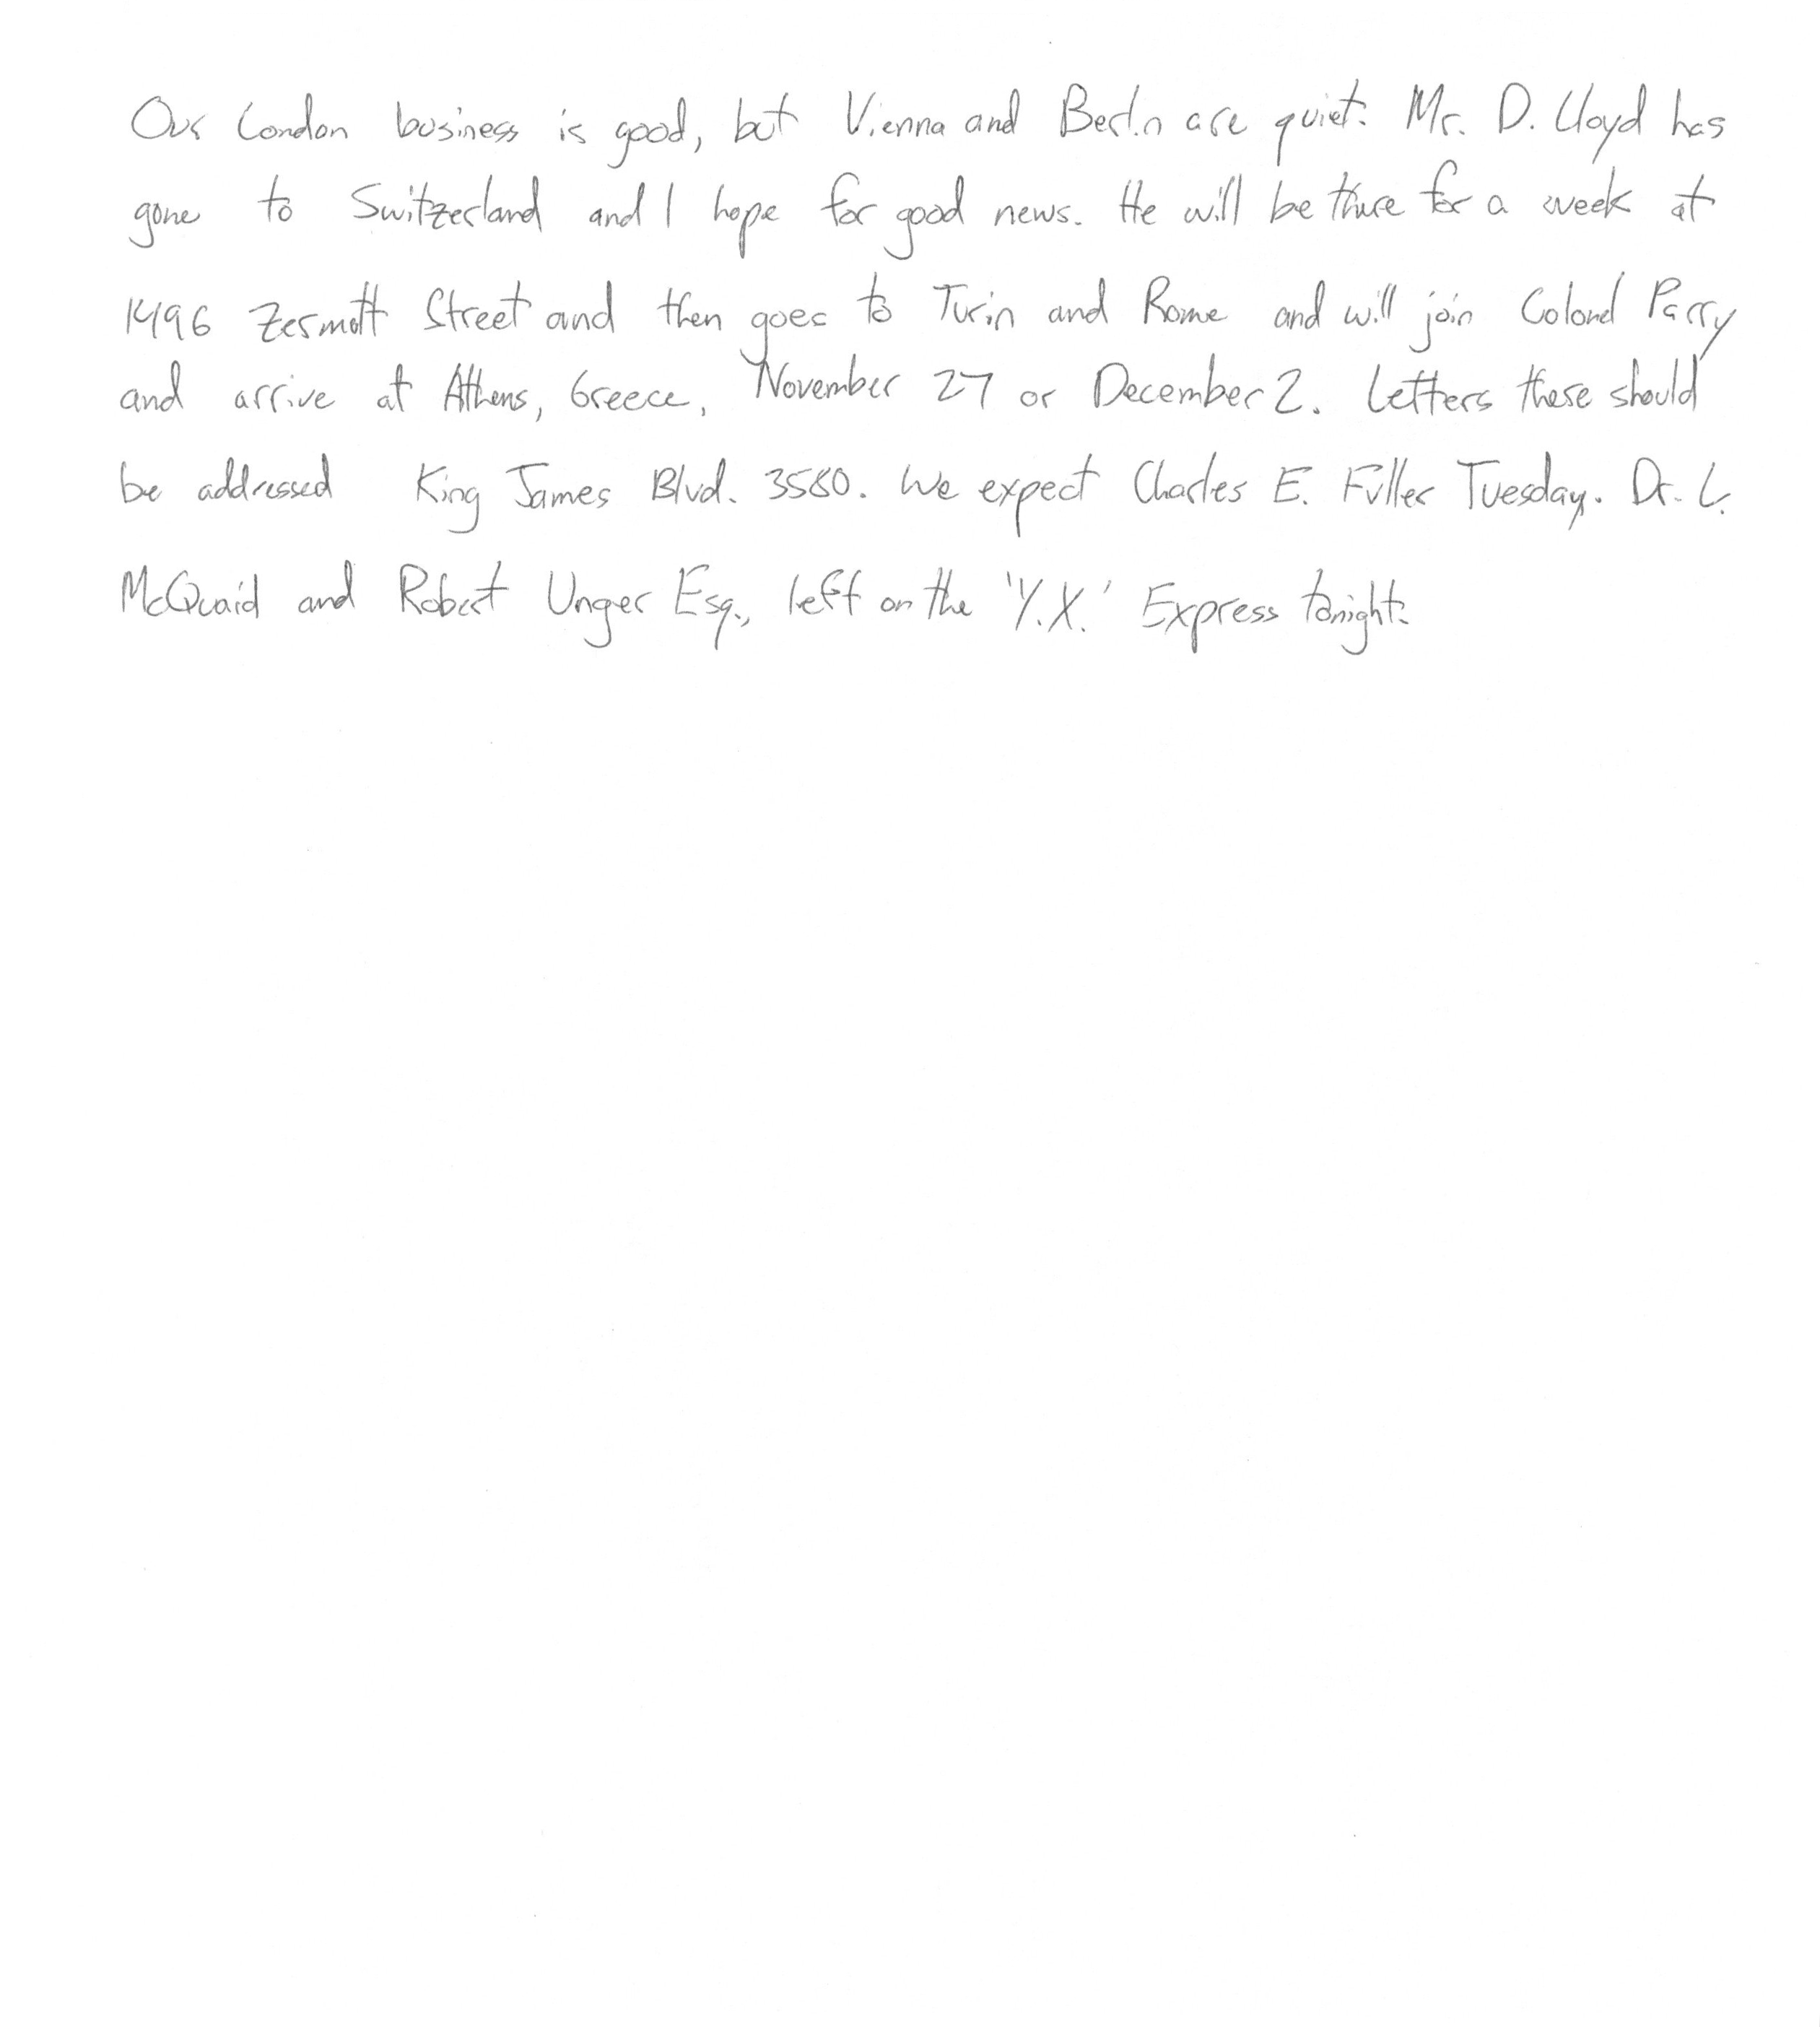 Our London business is good, but Vienna and Berlin are quiet. Mr. D. Lloyd has
gone to Switzerland and I hope for good news. He will be there for a week at
1496 Zermott Street and then goes to Turin and Rome and will join Colonel Parry
and arrive at Athens, Greece, November 27 or December 2. Letters there should
be addressed King James Blvd. 3580. We expect Charles E. Fuller Tuesday. Dr. L.
McQuaid and Robert Unger Esq., left on the 'Y.X.' Express tonight.